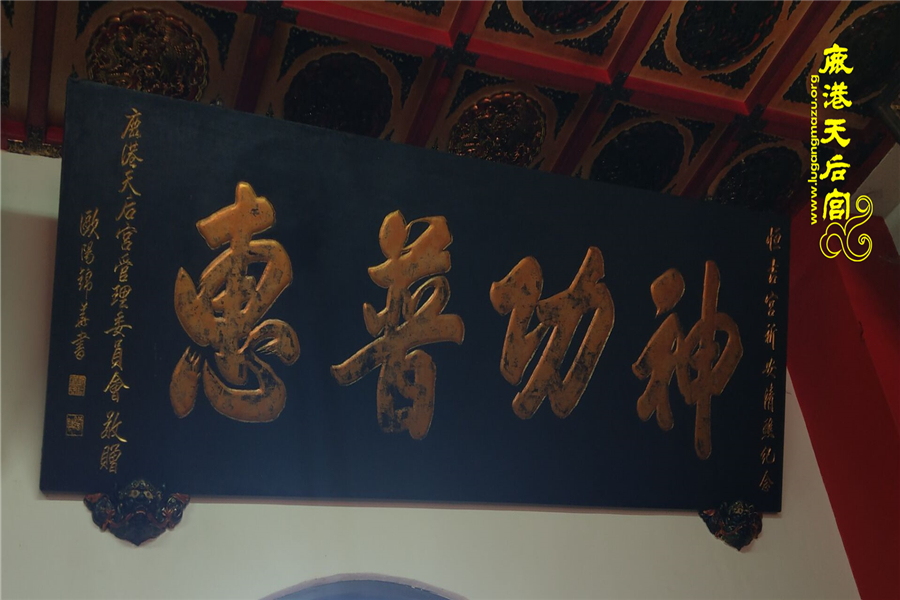 恒吉宮新安清醮紀念
神功普惠
鹿港天后宮管理委員會敬贈
歐陽錦華書
鹿港天后宮
www.lugangmazu.org